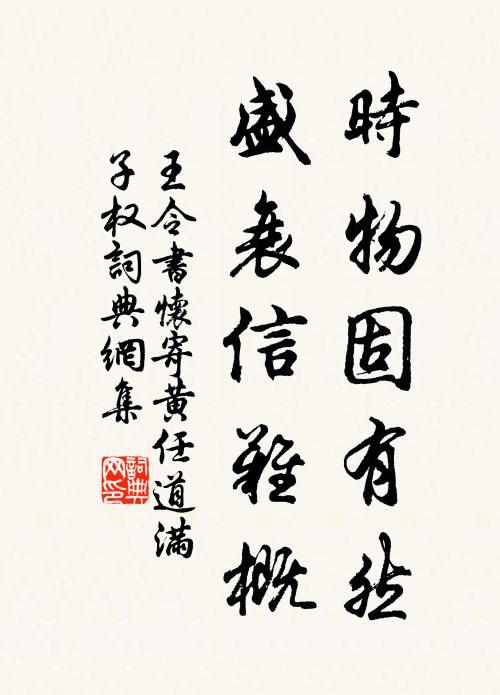 時物固有然
盛衰信難概
王令書懷寄黃任道滿
子权詞典網集
詞典網印